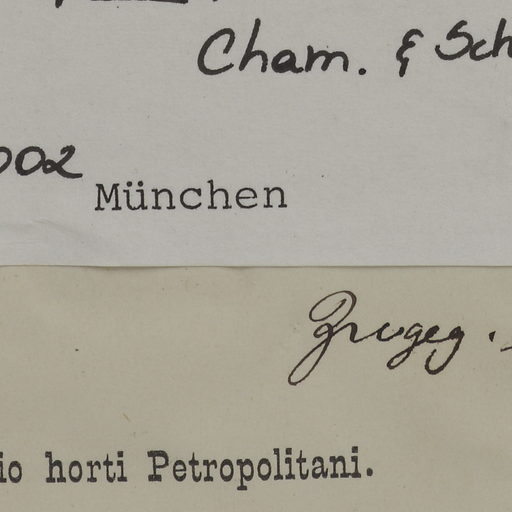 Cham. & Sch
002
München
io horti Petropolitani.